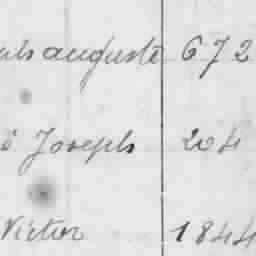 auguste 672
é Joseph 204
Victor 1844